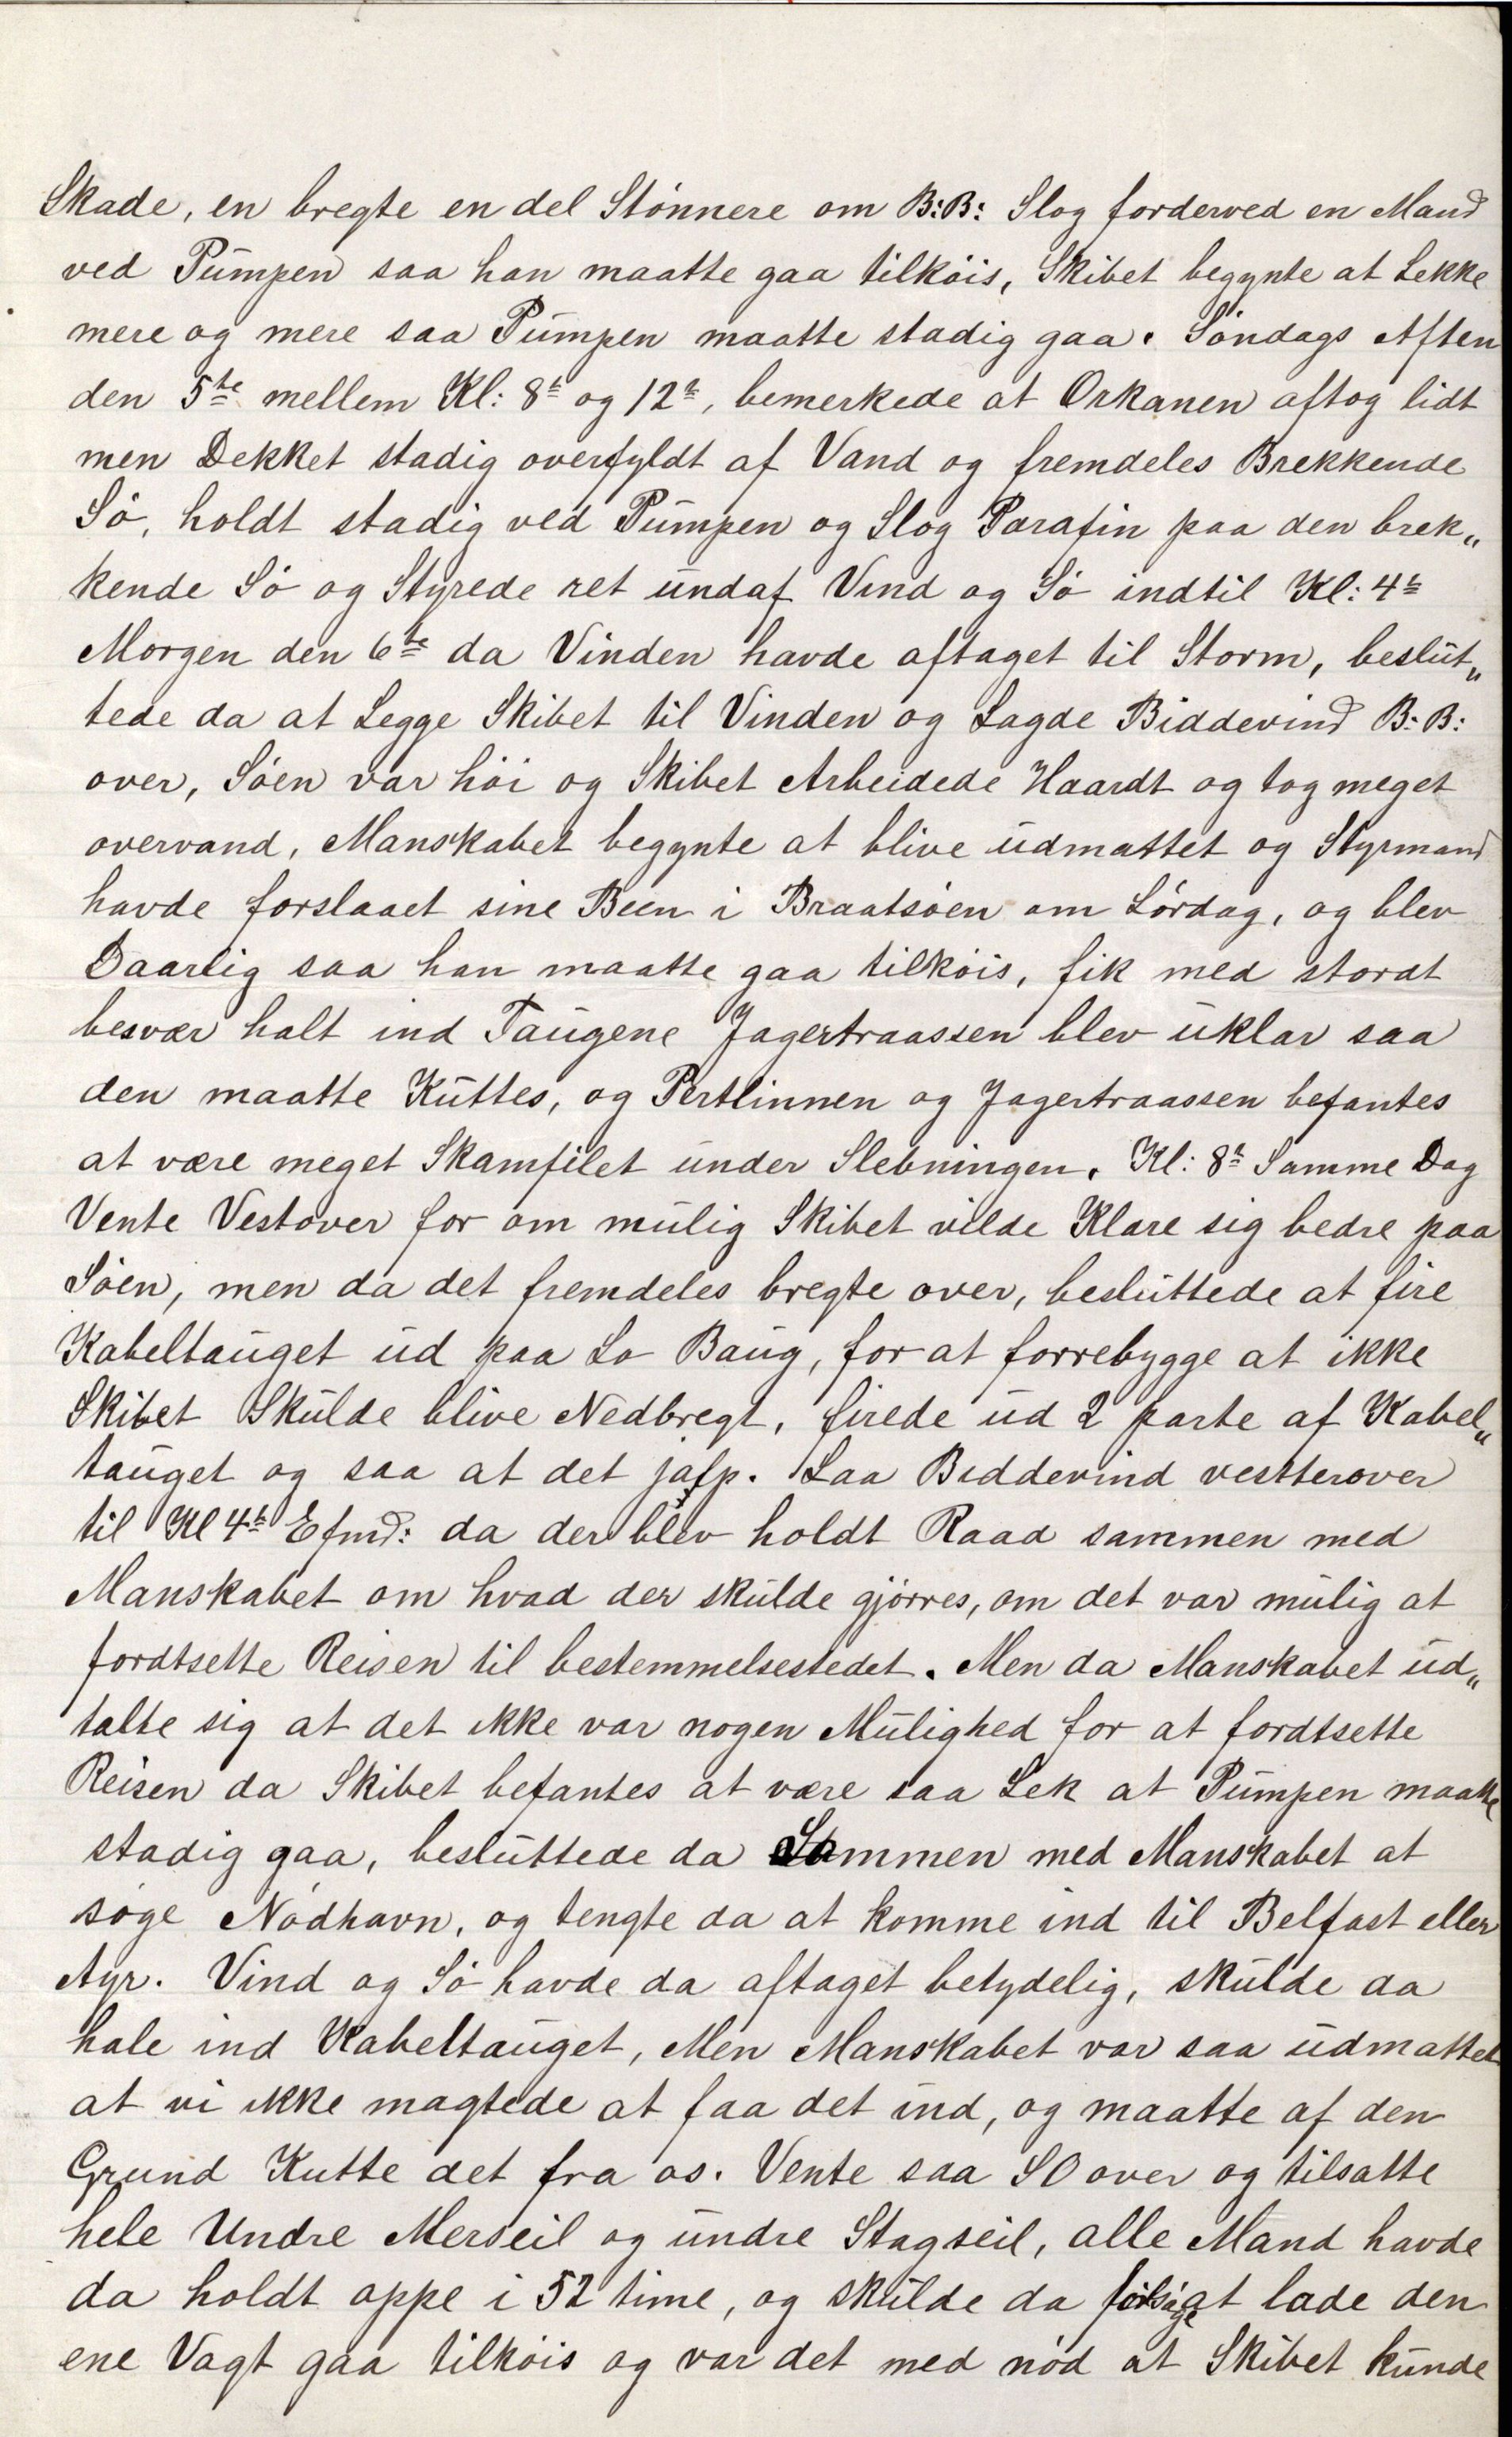 Skade, en bregte en del Stønnere om B:B: Slog forderved en Mand
ved Pumpen saa han maatte gaa tilkøis, Skibet begynte at Lekke
mere og mere saa Pumpen maatte stadig gaa. Søndags Aften
den 5te mellem Kl: 8h og 12h, bemerkede at Orkanen aftog lidt
men Dekket stadig overfyldt af Vand og fremdeles Brekkende
Sø, holdt stadig ved Pumpen og Slog Parafin paa den brek„
kende Sø og Styrede ret undaf Vind og Sø indtil Kl: 4h
Morgen den 6te da Vinden havde aftaget til Storm, beslut„
tede da at Legge Skibet til Vinden og Lagde Biddevind B:B:
over, Søen var høi og Skibet Arbeidede Haardt og tog meget
overvand, Manskabet begynte at blive udmattet og Styrmand
havde forslaaet sine Been i Braatsøen om Lørdag, og blev
Daarlig saa han maatte gaa tilkøis, fik med stordt
besvær halt ind Taugene Jagertraassen blev uklar saa
den maatte Kuttes, og Pertlinnen og Jagertraassen befantes
at være meget Skamfilet under Slebningen. Kl: 8h Samme Dag
Vente Vestover for om mulig Skibet vilde Klare sig bedre paa
Søen, men da det fremdeles bregte over, besluttede at fire
Kabeltauget ud paa Lo Baug, for at forrebygge at ikke
Skibet Skulde blive Nedbregt, firede ud 2 parte af Kabel„
tauget og saa at det jalp. Laa Biddevind vestterover
til Kl 4h Efmd: da der blev holdt Raad sammen med
Manskabet om hvad der skulde gjørres, om det var mulig at
fordtsette Reisen til bestemmelsestedet. Men da Manskabet ud„
talte sig at det ikke var nogen Mulighed for at fordtsette
Reisen da Skibet befantes at være saa Lek at Pumpen maatte
stadig gaa, besluttede da Sammen med Manskabet at
søge Nødhavn, og tengte da at komme ind til Belfast eller
Ayr. Vind og Sø havde da aftaget betydelig, skulde da
hale ind Kabeltauget, Men Manskabet var saa udmattet
at vi ikke magtede at faa det ind, og maatte af den
Grund Kutte det fra os. Vente saa SO over og tilsatte
hele Undre Merseil og undre Stagseil, alle Mand havde
da holdt oppe i 52 time, og skulde da forsøge at lade den
ene Vagt gaa tilkøis og var det med nød at Skibet kunde